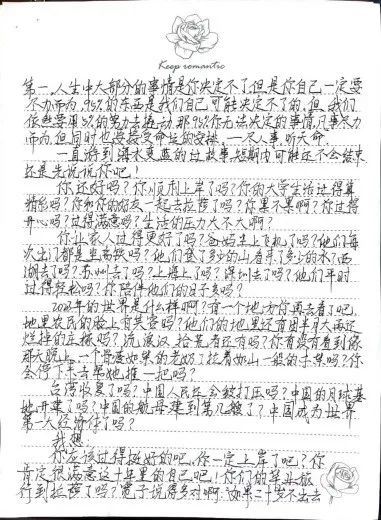 Keep romantic
第一,人生中大部分的事情是你决定不了,但是你自己一定要
尽力而为,95%的东西是我们自己可能决定不了的,但,我们
依然要用5%的努力去撬动那95%你无法决定的事情,凡事尽力
而为,但同时也要接受命运的安排,一尽人事,听天命.
一直游到海水变蓝的过故事短期内可能还不会结束
还是先说说你吧!
你还好吗?你顺利上岸了吗?你的大学生活过得算
精彩吗?你和你的朋友一起去拉萨了吗?你累不累啊?你过得
开心吗?过得满意吗?生活的压力大不大啊?
你让家人过得更好了吗?爸妈坐上飞机了吗?他们每
次出门都是坐高铁吗?他们登了多少的山看了多少的水?西
湖去了吗?苏州去了吗?上海上了吗?深圳去了吗?他们平时
过得轻松吗?你陪伴他们的日子多吗?
年的世界是什么样啊?有一个地方你再去看了吧
地里农民的脸上有笑容吗?他们的地里还有因半月大雨还
烂掉的玉梗吗?流浪汉、拾荒者还有吗?你有没有看到佝
那天晚上,一个骨瘦如柴的老奶奶拉着如山一般的手某吗?你
会停下来去帮她,推一把吗?
台湾收复了吗?中国人民还会被打压吗?中国的月球基
地开幕了吗?中国的航母集到第几艘了?中国成为世界
第一大经济体了吗?
我想,
你应该过得挺好的吧,你一定上岸了吧?你
肯定很满意这十年里的自己吧!你们的毕业旅
行到拉萨了吗?宽子说得多对啊,如果二十岁不出去